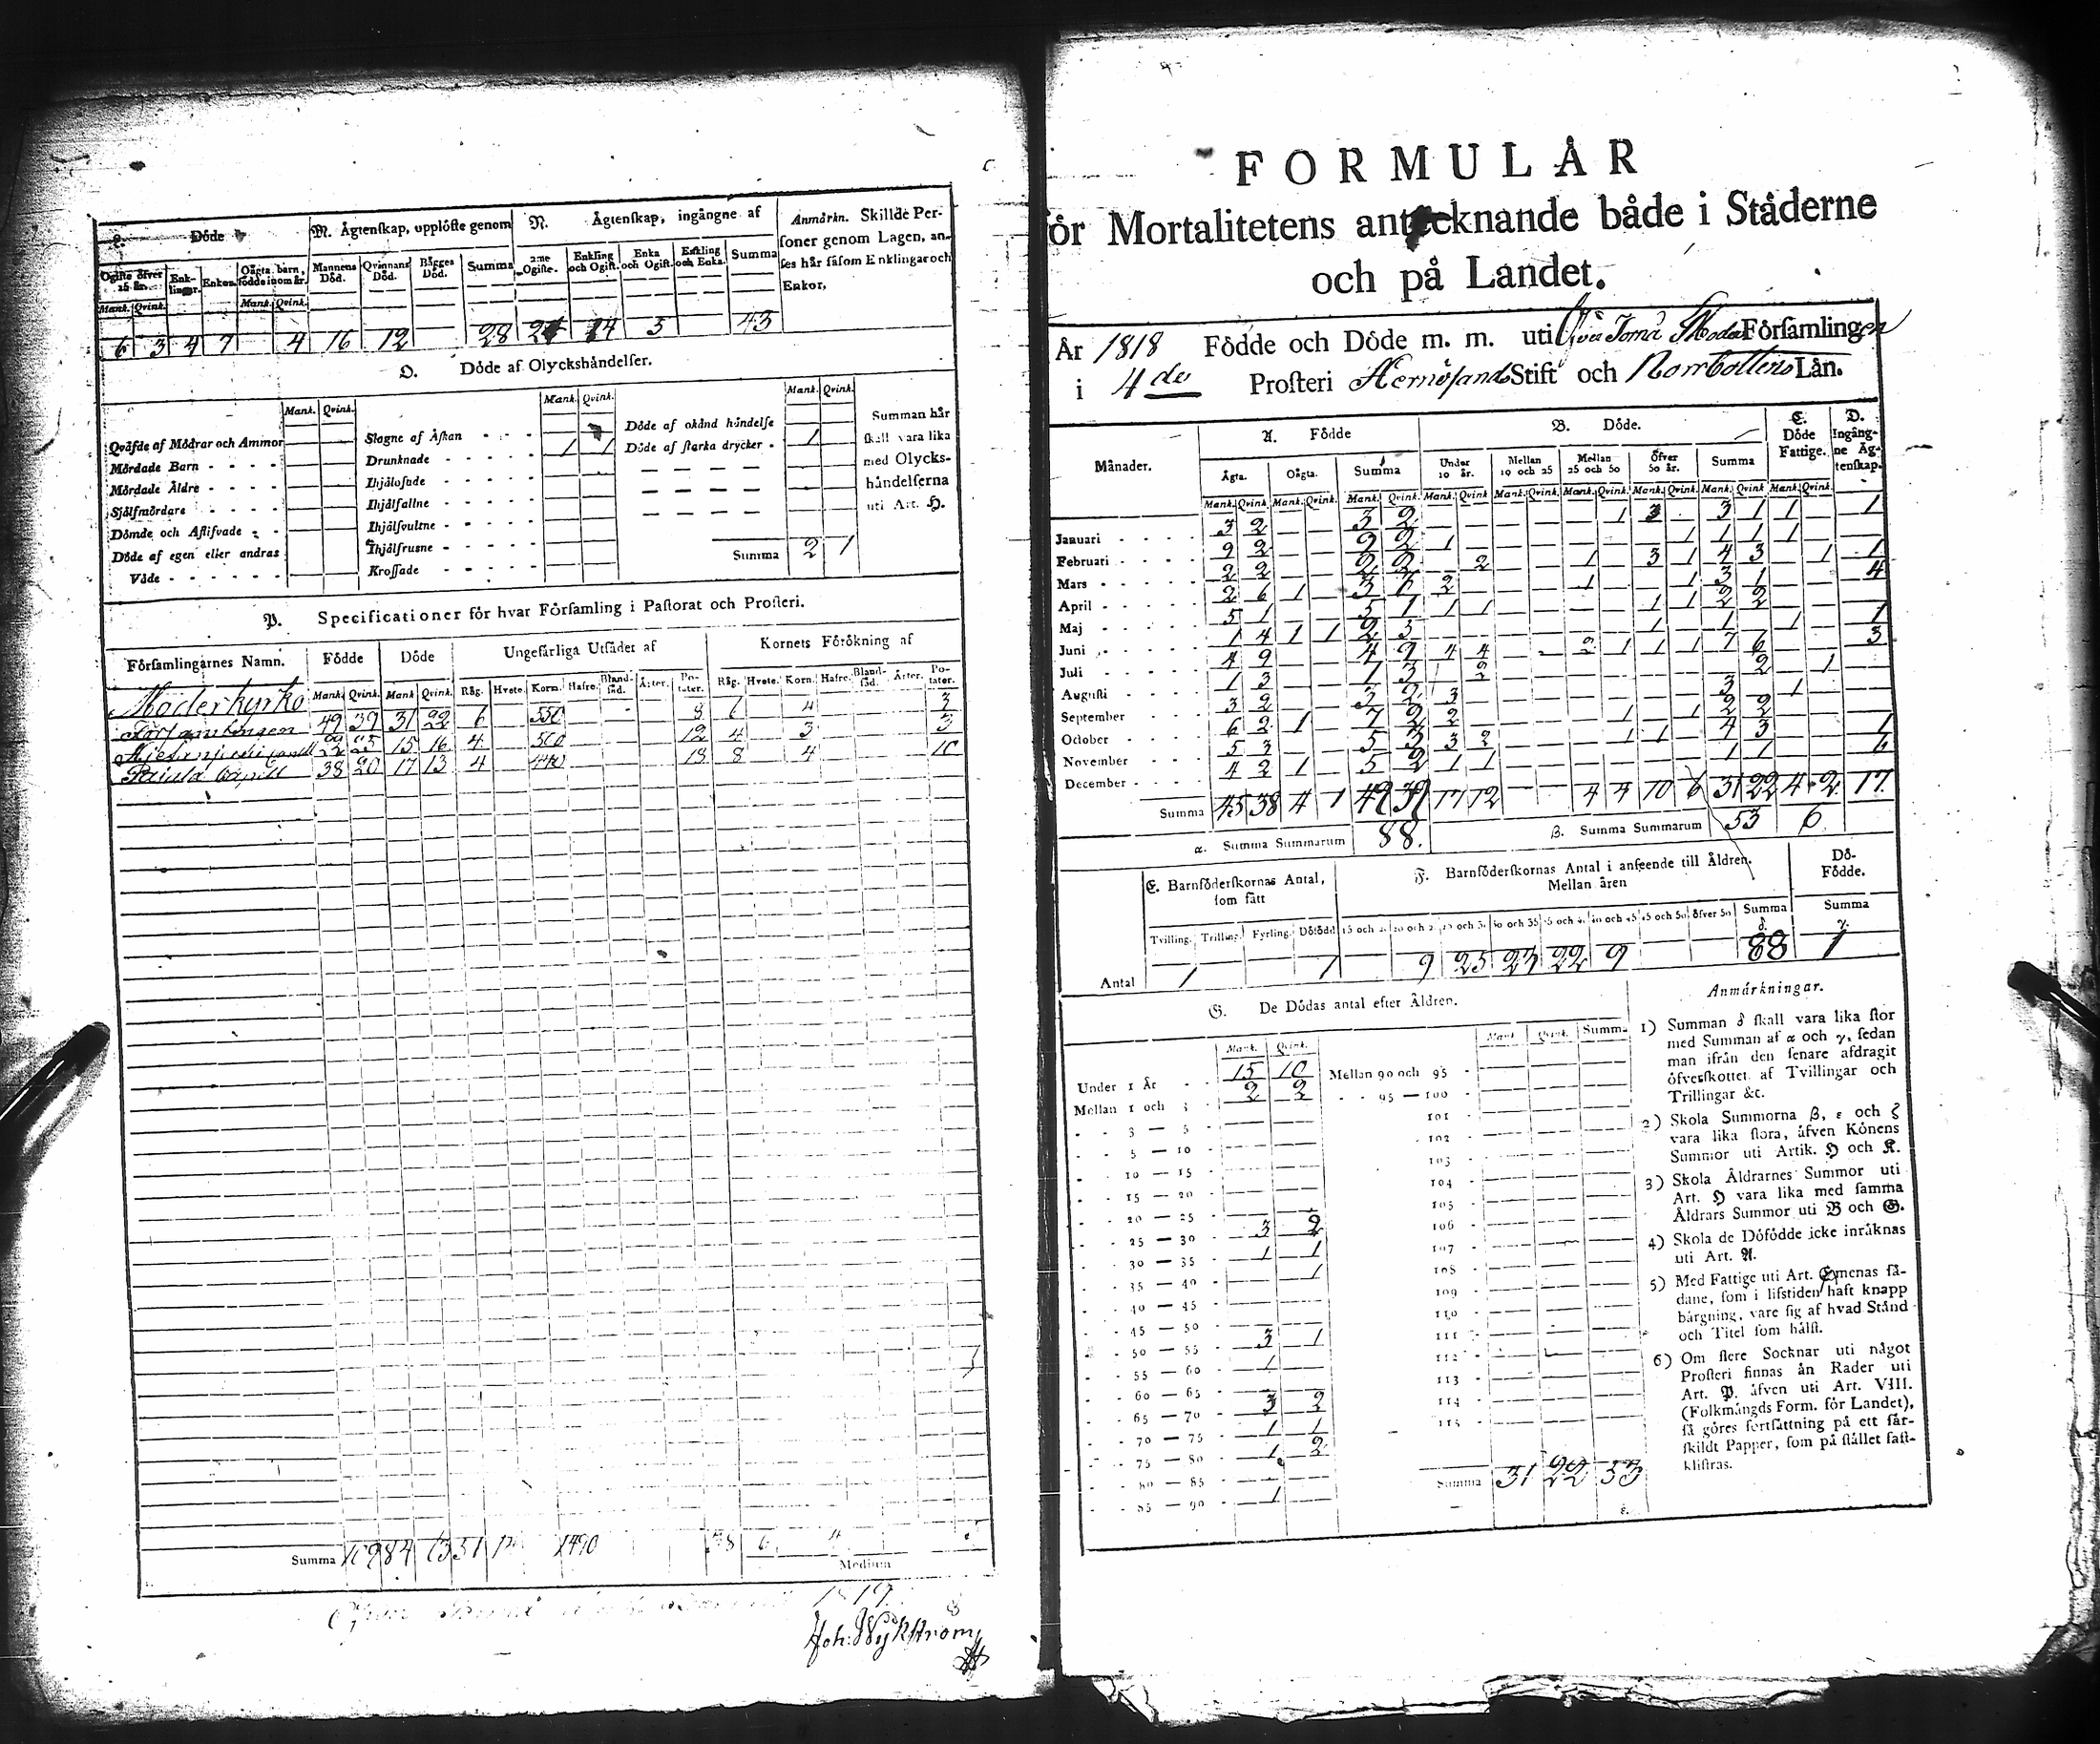 Döde
M. Ägtenskap, upplöste genom
N. Ägtenskap, ingångne af
Anmärkn. Skillde Per-
soner genom Lagen, an-
ses här såsom Enklingar och
Enkor,
Ogifte öfver 25 år.
Enk-lingar.
Enkor.
Oägta barn, födde inom år.
Mannens Död.
Qvinnans Död.
Bägges Död.
Summa
2:ne Ogifte.
Enkling och Ogift.
Enka och Ogift.
Enkling och Enka.
Summa
Mank. Qvink. Mank. Qvink.
6 3 4 7 4 16 12 28 24 14 5 43
O. Döde af Olyckshändelser.
Mank. Qvink. Mank. Qvink. Mank. Qvink.
Qväfde af Mödrar och Ammor
Mördade Barn
Mördade Äldre
Sjelfmördare
Dömde och Aflifvade
Döde af egen eller andras
Våde
Slagne af Åskan
Drunknade 1 1
Ihjälosade
Ihjälfallne
Ihjälsvultne
Ihjälfrusne
Krossade
Döde af okänd händelse
Döde af starka drycker 1
Summa 2 1
Summan här
skall vara lika
med Olycks-
händelserna
uti Art. H.
P. Specificationer för hvar Församling i Pastorat och Prosteri.
Församlingarnes Namn. Födde Döde Ungefärliga Utsädet af Kornets Förökning af
Mank. Qvink. Mank. Qvink. Råg. Hvete. Korn. Hafre. Bland-säd. Ärter. Po-tater. Råg. Hvete. Korn. Hafre. Bland-säd. Ärter. Po-tater.
Moderkyrko
Församlingen 49 39 31 22 6 550 8 6 4 3
22 25 15 16 4 500 12 4 3 3
38 20 17 13 4 440 18 8 4 10
Summa 109 84 63 51 14 1490 38 6 4
Medium
1819.
Joh: Wykström
FORMULÄR
för Mortalitetens antecknande både i Städerne
och på Landet.
År 1818 Födde och Döde m. m. uti Öfver Torneå Moder Församlingen
i 4de Prosteri Hernösands Stift och Norrbottens Län.
Månader.
A. Födde
B. Döde.
C. Döde Fattige.
D. Ingång-ne Äg-tenskap.
Ägta. Oägta. Summa Under 10 år. Mellan 10 och 25 Mellan 25 och 50 Öfver 50 år. Summa
Mank. Qvink. Mank. Qvink. Mank. Qvink. Mank. Qvink. Mank. Qvink. Mank. Qvink. Mank. Qvink. Mank. Qvink. Mank. Qvink.
Januari 3 2 3 2 1 3 3 1 1 1
Februari 9 2 9 2 1 1 1 1 1
Mars 2 2 2 2 2 1 3 1 4 3 1 1
April 2 6 1 3 6 2 1 1 3 1 4
Maj 5 1 5 1 1 1 1 1 2 2
Juni 1 4 1 1 2 5 1 1 1 1
Juli 4 9 4 9 4 4 2 1 1 1 7 6 3
Augusti 1 3 1 3 2 2 1
September 3 2 3 2 3 3 1
October 6 2 1 7 2 2 1 1 2 2
November 5 3 5 3 3 2 1 1 4 3 1
December 4 2 1 5 2 1 1 1 1 6
Summa 45 38 4 1 49 39 17 12 4 4 10 6 31 22 4 2 17
α. Summa Summarum 88.
β. Summa Summarum 53 6
E. Barnföderskornas Antal,
som fått
F. Barnföderskornas Antal i anseende till Åldren.
Mellan åren
Dö-
Födde.
Tvilling. Trilling. Fyrling. Dödfödd Öfver 50 Summa Summa
δ. γ.
Antal 1 1 9 25 23 22 9 88 1
G. De Dödas antal efter Åldren.
Mank. Qvink. Mank. Qvink. Summa
Under 1 År 15 10
Mellan 1 och 3 2 2
3 — 5
5 — 10
10 — 15
15 — 20
20 — 25
25 — 30 3 2
30 — 35 1 1
35 — 40 1
40 — 45
45 — 50
50 — 55 3 1
55 — 60 1
60 — 65
65 — 70 3 2
70 — 75 1 1
75 — 80 1 2
80 — 85
85 — 90 1
Mellan 90 och 95
95 — 100
101
102
103
104
105
106
107
108
109
110
111
112
113
114
115
Summa 31 22 53
ε.
Anmärkningar.
1) Summan δ skall vara lika stor
med Summan af α och γ, sedan
man ifrån den senare afdragit
öfverskottet af Tvillingar och
Trillingar &c.
2) Skola Summorna β, ε och ζ
vara lika stora, äfven Könens
Summor uti Artik. H och K.
3) Skola Åldrarnes Summor uti
Art. H vara lika med samma
Åldrars Summor uti B och G.
4) Skola de Döfödde icke inräknas
uti Art. A.
5) Med Fattige uti Art. C menas så-
dane, som i lifstiden haft knapp
bärgning, vare sig af hvad Stånd
och Titel som hälst.
6) Om flere Socknar uti något
Prosteri finnas än Rader uti
Art. P. äfven uti Art. VIII.
(Folkmängds Form. för Landet),
så göres fortsättning på ett sär-
skildt Papper, som på stället fast-
klistras.